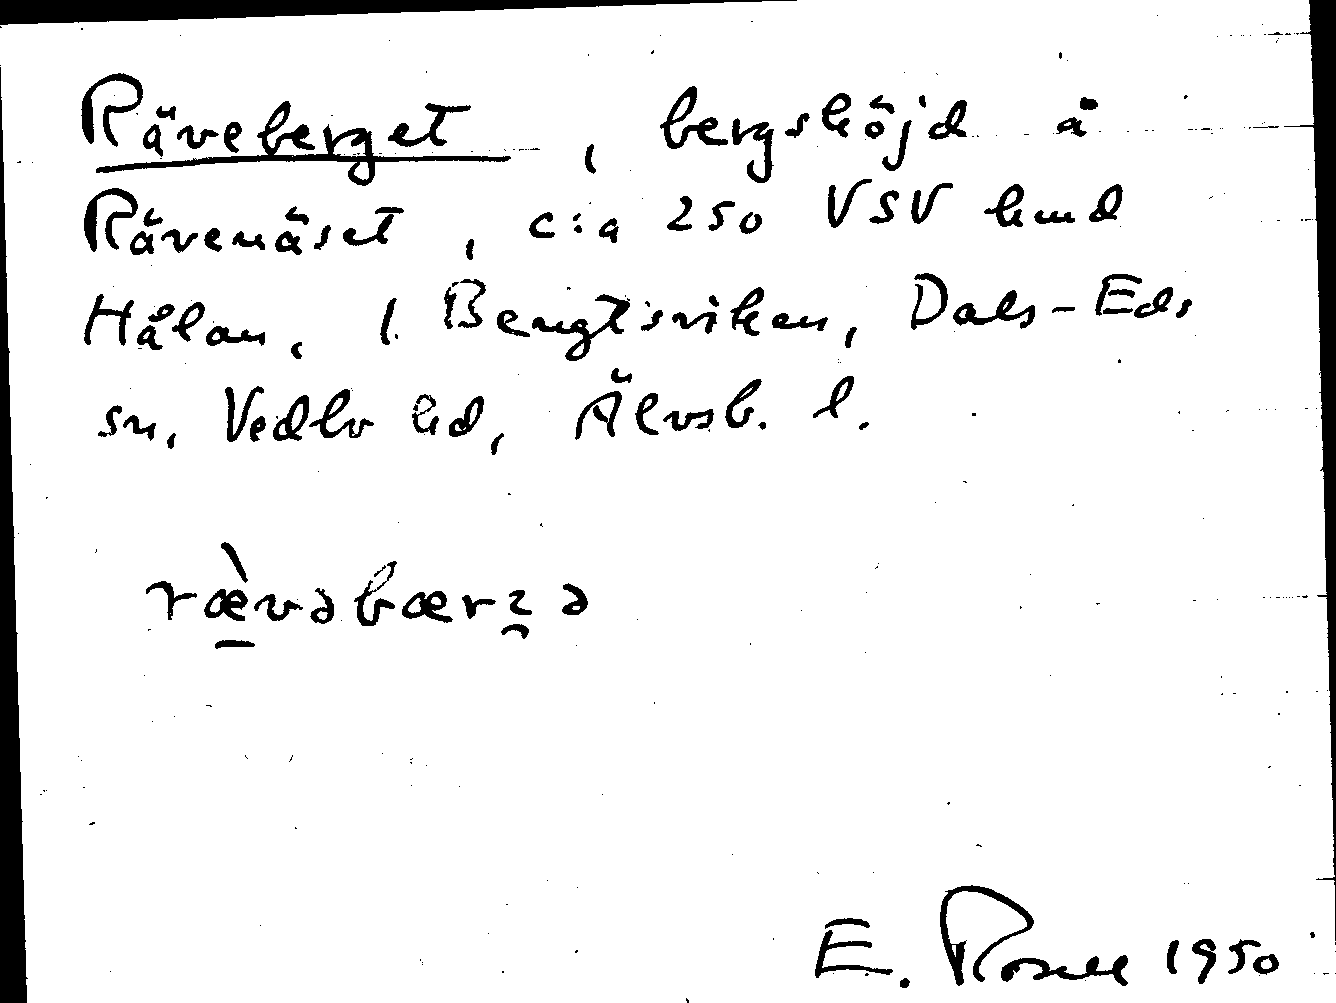 Räveberget, bergshöjd å
Rävenäset, c:a 250 VSV hmd
Hålan, l. Bengtsviken, Dals-Eds
sn, Vedbo hd, Älvsb. l.
rævəbærzə
E. Rosell 1950